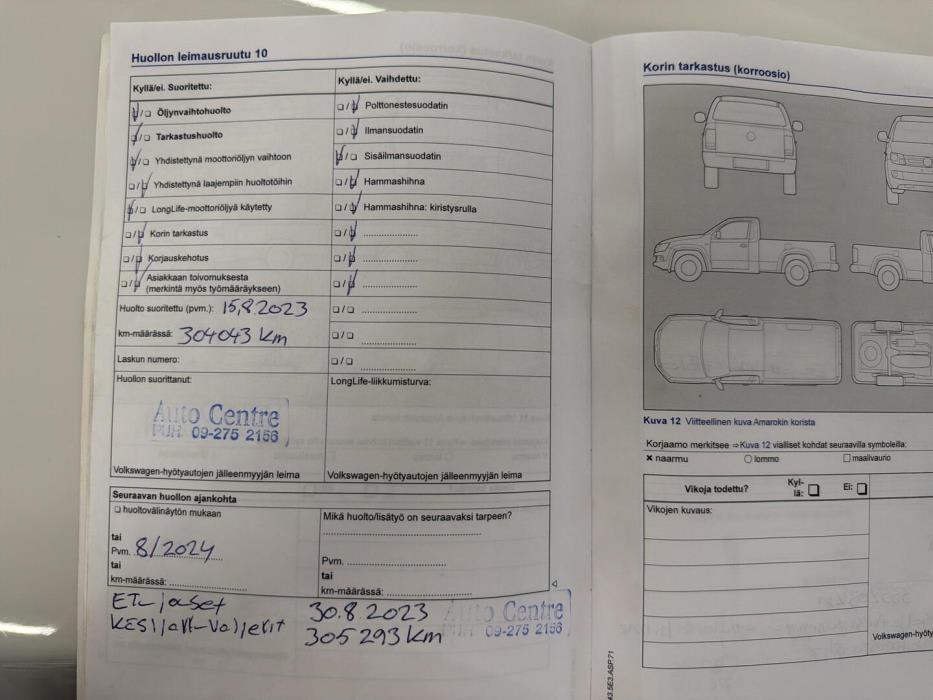 Huollon leimausruutu 10
Kyllä/ei. Suoritettu:
Öljynvaihtohuolto
Tarkastushuolto
Yhdistettynä moottoriöljyn vaihtoon
Yhdistettynä laajempiin huoltotöihin
LongLife-moottoriöljyä käytetty
Korin tarkastus
Korjauskehotus
Asiakkaan toivomuksesta
(merkintä myös työmääräykseen)
Huolto suoritettu (pvm.): 15,8.2023
km-määrässä: 304043 km
Laskun numero:
Huollon suorittanut:
Auto Centre
PUH. 09-275 2156
Volkswagen-hyötyautojen jälleenmyyjän leima
Kyllä/ei. Vaihdettu:
Polttonestesuodatin
Ilmansuodatin
Sisäilmansuodatin
Hammashihna
Hammashihna: kiristysrulla
LongLife-liikkumisturva:
Volkswagen-hyötyautojen jälleenmyyjän leima
Seuraavan huollon ajankohta
huoltovälinäytön mukaan
tai
Pvm. 8/2024
tai
km-määrässä:
Mikä huolto/lisätyö on seuraavaksi tarpeen?
Pvm.
tai
km-määrässä:
30.8.2023
305293 km
Auto Centre
PUH 09-275 2156
Korin tarkastus (korroosio)
Kuva 12 Viitteellinen kuva Amarokin korista
Korjaamo merkitsee ⇒ Kuva 12 vialliset kohdat seuraavilla symboleilla:
× naarmu ○ lommo □ maalivaurio
Vikoja todettu? Kyl-
lä: Ei:
Vikojen kuvaus: